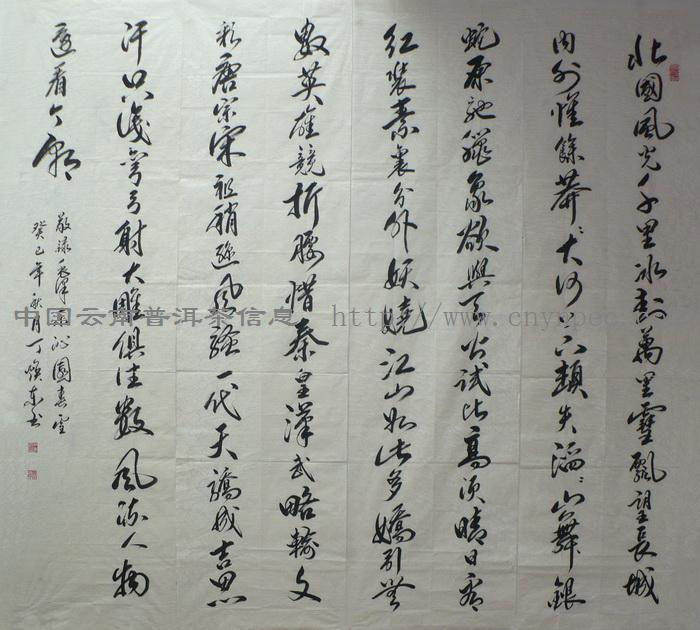 北國風光千里冰封萬里雪飄望長城
内外惟餘莽〻大河上下頓失滔〻山舞銀
蛇原馳臘象欲與天公試比高須晴日看
红装素裹分外妖嬈江山如此多嬌引無
數英雄競折腰惜秦皇漢武略輸文
彩唐宗宋祖稍遜風騷一代天驕成吉思
汗只識彎弓射大雕俱往數風流人物
還看今朝
敬録毛澤東沁園春雪
癸巳年秋月丁焕东书
中国云南普洱茶信息 http://www.cnynpec